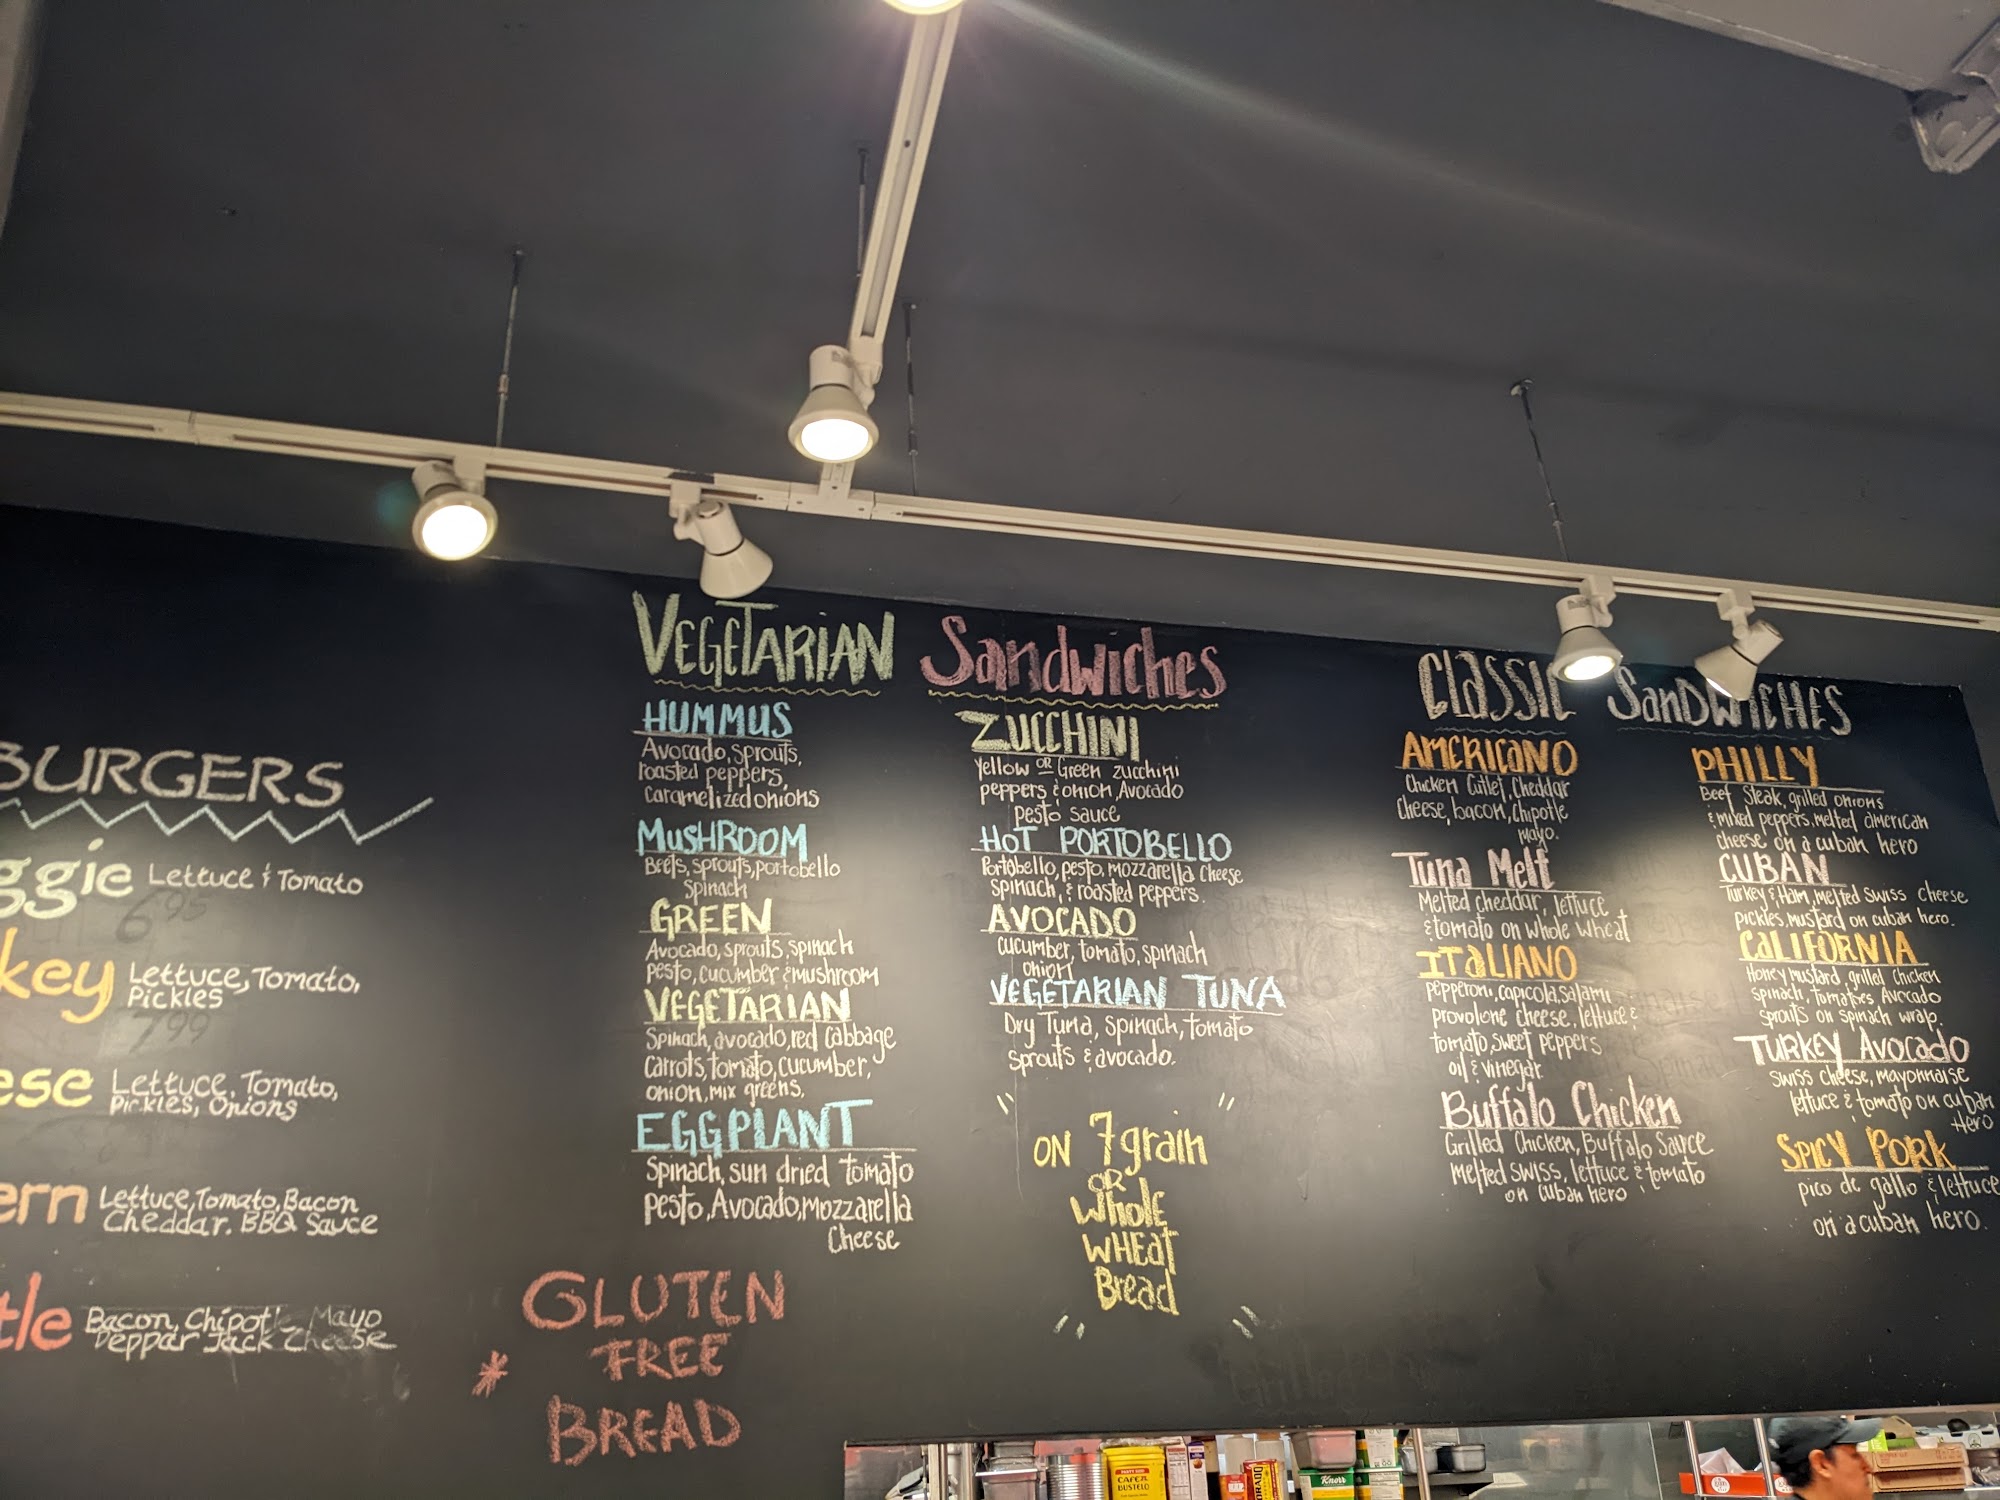 BURGERS
Lettuce & Tomato
6.95
Lettuce, Tomato,
Pickles
7.99
Lettuce, Tomato,
Pickles, Onions
Lettuce, Tomato, Bacon
Cheddar. BBQ Sauce
Bacon, Chipotle Mayo
Peppar Jack Cheese
GLUTEN
* FREE
BREAD
VEGETARIAN Sandwiches
HUMMUS
Avocado, sprouts,
roasted peppers,
caramelized onions
MUSHROOM
Beets, sprouts, portobello
Spinach
GREEN
Avocado, sprouts, spinach
pesto, cucumber & mushroom
VEGETARIAN
Spinach, avocado, red cabbage
Carrots, tomato, cucumber,
onion, mix greens.
EGGPLANT
Spinach, sun dried tomato
pesto, Avocado, mozzarella
Cheese
ZUCCHINI
Yellow OR Green zucchini
peppers & onion, Avocado
pesto sauce
HOT PORTOBELLO
Portobello, pesto, mozzarella cheese
spinach, & roasted peppers.
AVOCADO
cucumber, tomato, spinach
onion
VEGETARIAN TUNA
Dry Tuna, spinach, tomato
sprouts & avocado.
ON 7 grain
OR
Whole
WHEat
Bread
Classic SanDWICHES
AMERICANO
Chicken Cutlet, Cheddar
Cheese, bacon, Chipotle
mayo.
Tuna Melt
Melted cheddar, lettuce
& tomato on whole wheat
ITALIANO
pepperoni, capicola, salami
provolone cheese, lettuce &
tomato, sweet peppers
oil & vinegar
Buffalo Chicken
Grilled Chicken, Buffalo Sauce
melted swiss, lettuce & tomato
on cuban hero
PHILLY
Beef Steak, grilled onions
& mixed peppers, melted american
cheese on a cuban hero
CUBAN
Turkey & Ham, melted swiss cheese
pickles, mustard on cuban hero.
CALIFORNIA
Honey mustard, grilled chicken
spinach, tomatoes Avocado
sprouts on spinach wrap.
TURKEY Avocado
swiss cheese, mayonnaise
lettuce & tomato on cuban
Hero
SPICY PORK
pico de gallo & lettuce
on a cuban hero.
CAFE
BUSTELO
Knorr